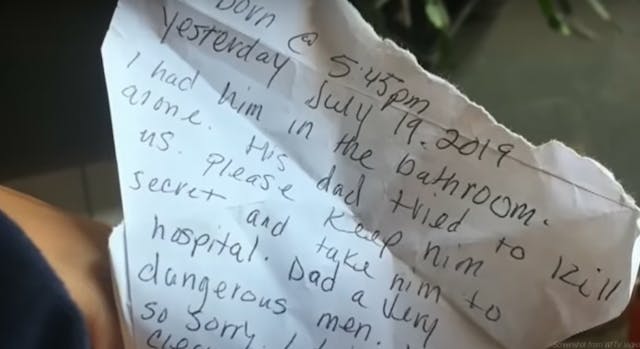 Born @ 5:45pm
Yesterday July 19. 2019
I had him in the bathroom.
alone. His dad tried to kill
us. please keep him
secret and take him to
hospital. Dad a very
dangerous men.
so sorry.
Screenshot from WFTV video